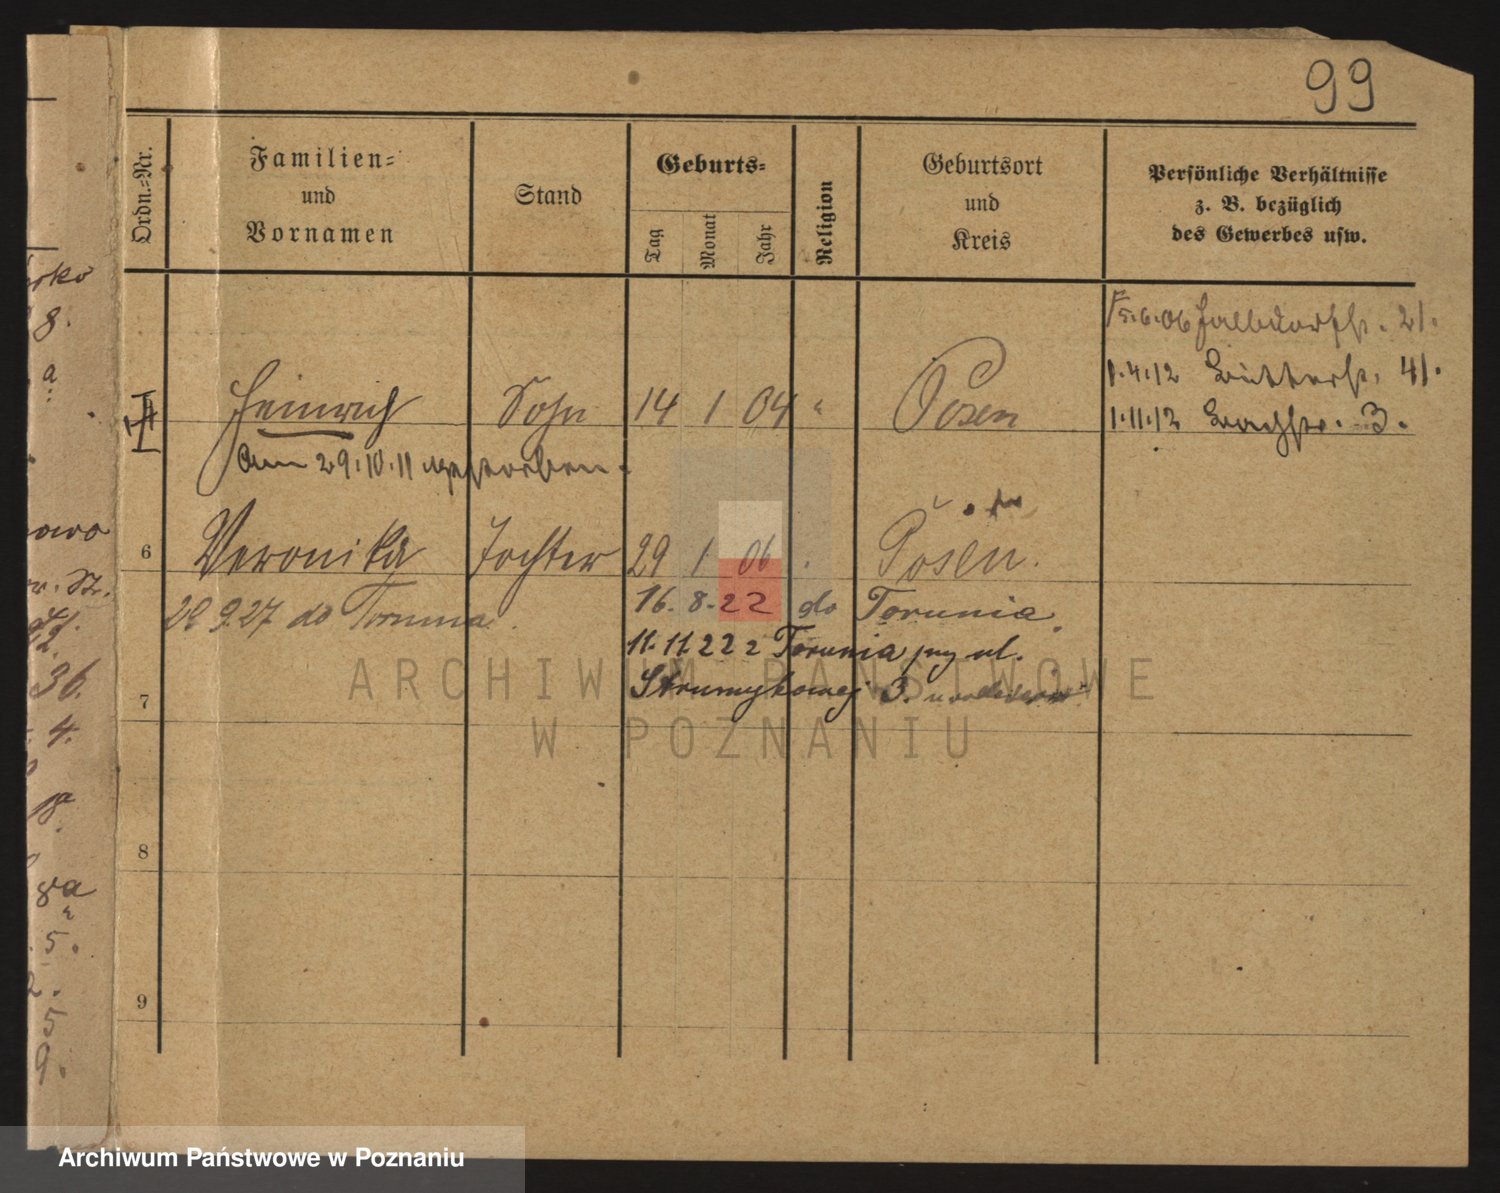 99
Ordn.=Nr.
Familien=
und
Vornamen
Stand
Geburts=
Tag
Monat
Jahr
Religion
Geburtsort
und
Kreis
Persönliche Verhältnisse
z. B. bezüglich
des Gewerbes usw.
5.6.06 21.
1.4.12 Ritterstr. 41.
1.11.12 Bachstr. 3.
Heinrich Sohn 14 1 04 " Posen
Am 29.10.11 gestorben.
6 Veronika Tochter 29 1 06 . Posen.
16. 8. 22 do Torunia.
29 9.27 do Torunia.
11.11.22 z Torunia przy ul.
7 Strumykowej 3.
8
9
orko
8.
a
owo
36.
4.
8a
5.
2.
5
9.
ARCHIWUM PAŃSTWOWE
W POZNANIU
Archiwum Państwowe w Poznaniu